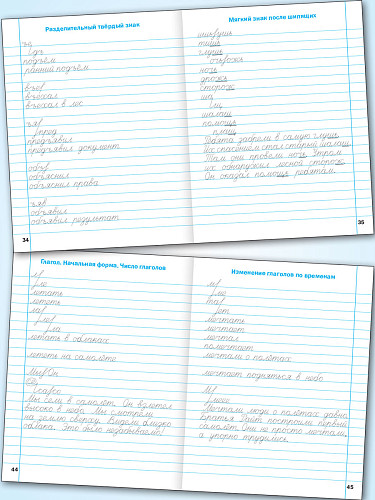 Разделительный твёрдый знак
ъ
подъём
ранний подъём
въехал
въехал в лес
предъявил
предъявил документ
объяснил
объяснил права
объявил
объявил результат
34
Мягкий знак после шипящих
тишь
глушь
ночь
дрожь
сторож
шалаш
помощь
плащ
Ребята забрели в самую глушь.
Их спасением стал старый шалаш.
Там они провели ночь. Утром
их обнаружил лесной сторож.
Он оказал помощь ребятам.
35
Глагол. Начальная форма. Число глаголов
летать
лететь
летать в облаках
лететь на самолёте
Мы Он
Мы сели в самолёт. Он взлетел
высоко в небо. Мы смотрели
на землю сверху. Видели близко
облака. Это было незабываемо!
44
Изменение глаголов по временам
мечтать
мечтает
мечтал
помечтает
мечтали о полётах
мечтает подняться в небо
Мечтали люди о полётах давно.
Братья Райт построили первый
самолёт. Они не просто мечтали,
а упорно трудились.
45